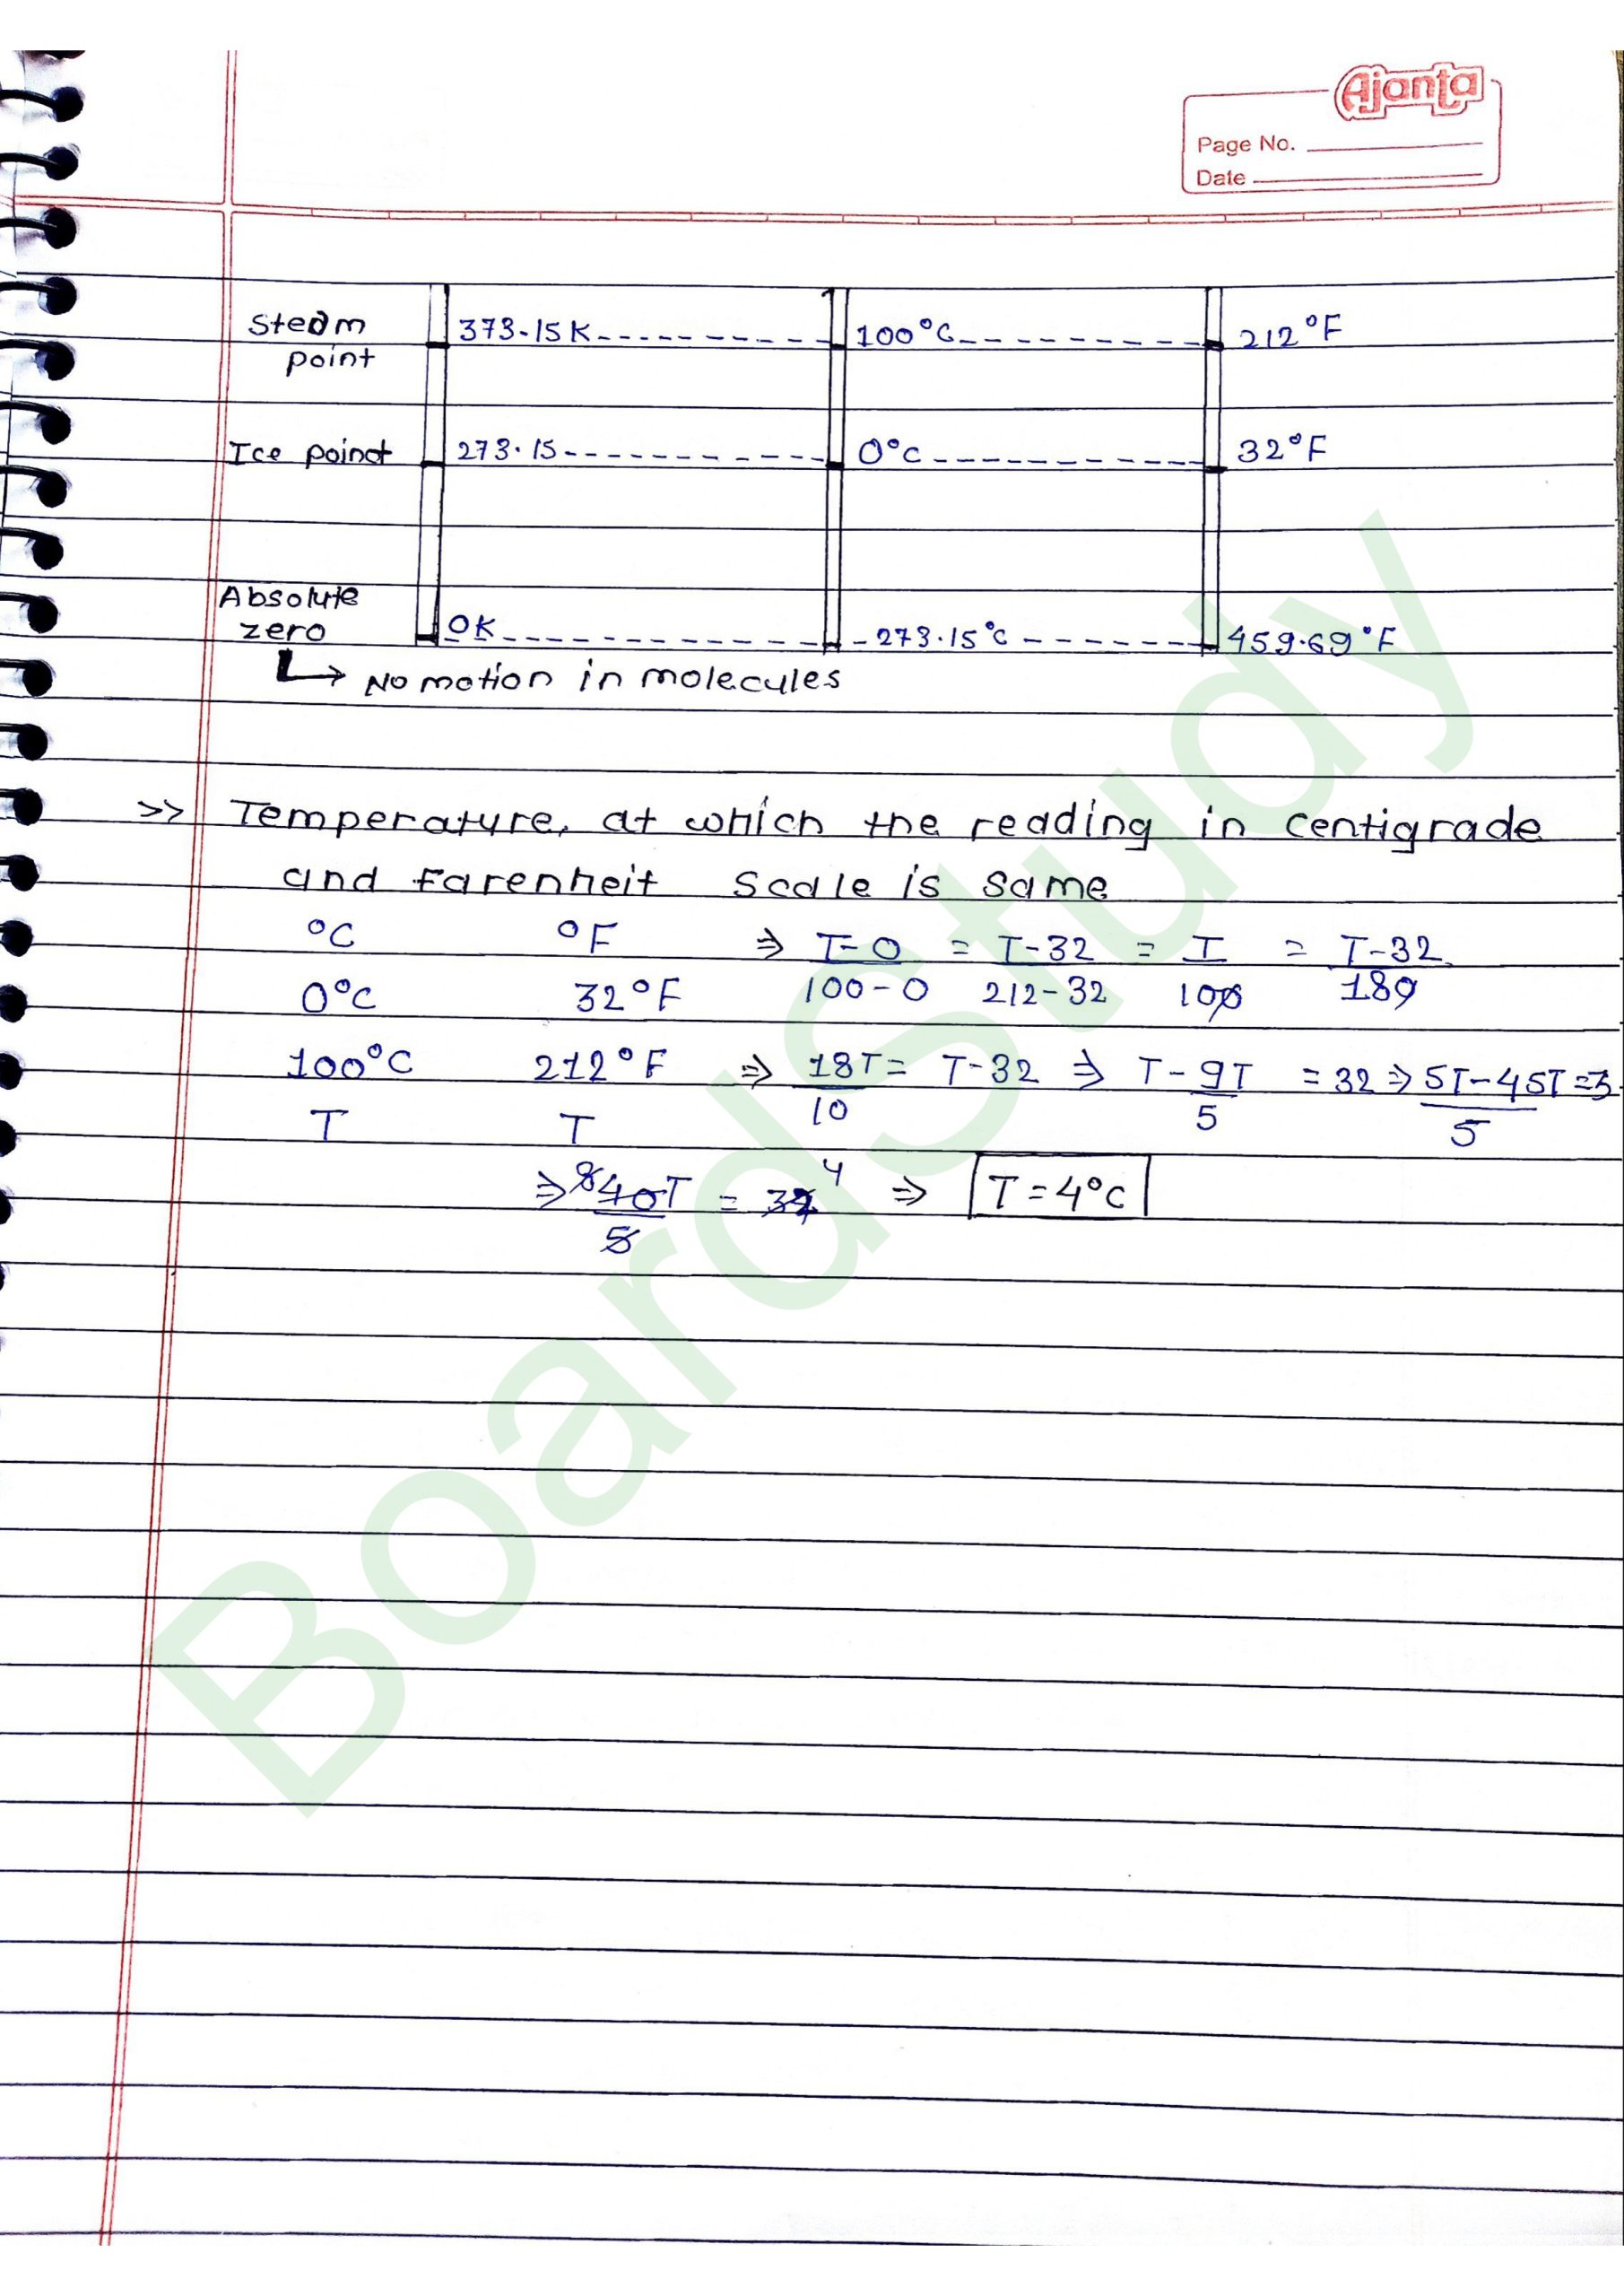 Ajanta
Page No.
Date
Steam point 373.15K 100°C 212°F
Ice poinot 273.15 0°C 32°F
Absolute zero 0K -273.15°C 459.69°F
↳ No motion in molecules
>> Temperature, at which the reading in centigrade
and Farenheit Scale is same
°C °F ⇒ T-0/100-0 = T-32/212-32 = T/100 = T-32/180
0°C 32°F
100°C 212°F ⇒ 18T/10 = T-32 ⇒ T-9T/5 = 32 ⇒ 5T-45T/5 = 3
T T
⇒ 8 40T/5 = 32 4 ⇒ T = 4°C
BoardStudy